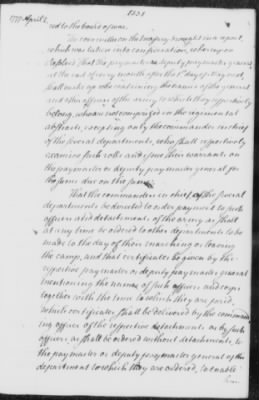 1777 April 2.
red to the board of war.
The committee on the treasury brought in a report,
which was taken into consideration, whereupon
Resolved That the paymaster or deputy paymaster general
at the end of every month after the 1st day of May next,
shall make up rolls containing the names of the general
and other officers of the army to which they respectively
belong, who are not comprized in the regimental
abstracts, excepting only the commanders in chief
of the several departments, who shall respectively
examine such rolls and issue their warrants on
the paymaster or deputy paymaster general for
the sums due on the same
That the commanders in chief of the several
departments be directed to order payment to such
officers and detachments of the army as shall
at any time be ordered to other departments to be
made to the day of their marching or leaving
the camp, and that certificates be given by the
respective paymaster or deputy paymaster general
mentioning the names of such officers and corps
together with the time to which they are paid,
which certificates shall be delivered by the command
ing officer of the respective detachments or by such
officers as shall be ordered without detachments, to
the paymaster or deputy paymaster general of the
department to which they are ordered, to enable
him